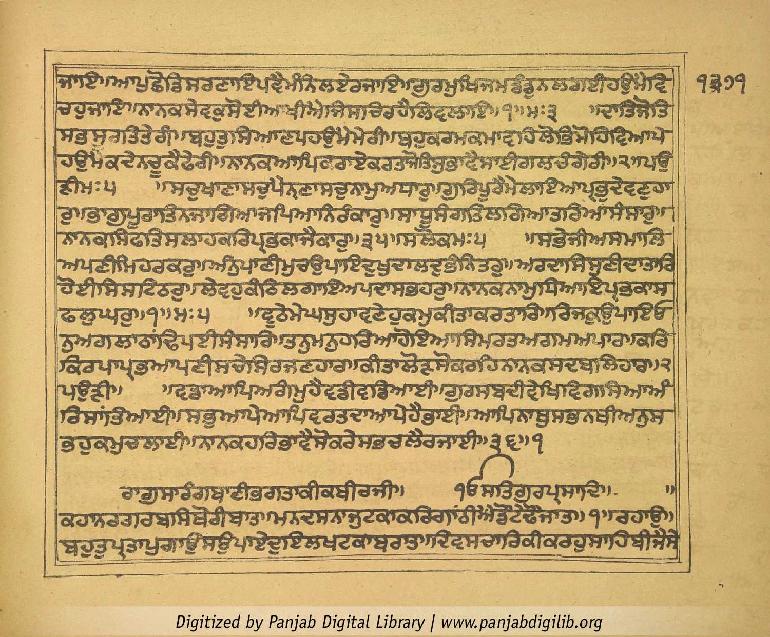 ੧੩੭੧
ਜਾਇ॥ਆਪੁਛੋਡਿਸਰਣਾਇਪਵੈਮੰਨਿਲਏਰਜਾਇ॥ਗੁਰਮੁਖਿਜਮਡੰਡੁਨਲਗਈਹਉਮੈਵਿ
ਚਹੁਜਾਇ॥ਨਾਨਕਸੇਵਕੁਸੋਈਆਖੀਐਜਿਸਚਿਰਹੈਲਿਵਲਾਇ॥੧॥ਮਃ੩ ॥ਦਾਤਿਜੋਤਿ
ਸਭਸੂਰਤਿਤੇਰੀ॥ਬਹੁਤੁਸਿਆਣਪਹਉਮੈਮੇਰੀ॥ਬਹੁਕਰਮਕਮਾਵਹਿਲੋਭਿਮੋਹਿਵਿਆਪੇ
ਹਉਮੈਕਦੇਨਚੂਕੈਫੇਰੀ॥ਨਾਨਕਆਪਿਕਰਾਏਕਰਤਾਜੋਤਿਸੁਭਾਵੈਸਾਈਗਲਚੰਗੇਰੀ॥੨॥ਪਉ
ੜੀਮਃ੫ ॥ਸਚੁਖਾਣਾਸਚੁਪੈਨਣਾਸਚੁਨਾਮੁਅਧਾਰੁ॥ਗੁਰਿਪੂਰੈਮੇਲਾਇਆਪ੍ਰਭੁਦੇਵਣਹਾ
ਰੁ॥ਭਾਗੁਪੂਰਾਤਿਨਜਾਗਿਆਜਪਿਆਨਿਰੰਕਾਰੁ॥ਸਾਧੂਸੰਗਤਿਲਗਿਆਤਰਿਆਸੰਸਾਰੁ॥
ਨਾਨਕਸਿਫਤਿਸਲਾਹਕਰਿਪ੍ਰਭਕਾਜੈਕਾਰੁ॥੩੫॥ਸਲੋਕਮਃ੫ ॥ਸਭੇਜੀਅਸਮਾਲਿ
ਅਪਣੀਮਿਹਰਕਰੁ॥ਅੰਨੁਪਾਣੀਮੁਚਉਪਾਇਦੁਖਦਾਲਦੁਭੰਨਿਤਰੁ॥ਅਰਦਾਸਿਸੁਣੀਦਾਤਾਰਿ
ਹੋਈਸਿਸਟਿਠਰੁ॥ਲੇਵਹੁਕੰਠਿਲਗਾਇਅਪਦਾਸਭਹਰੁ॥ਨਾਨਕਨਾਮੁਧਿਆਇਪ੍ਰਭਕਾਸ
ਫਲੁਘਰੁ॥੧॥ਮਃ੫ ॥ਵੁਠੇਮੇਘਸੁਹਾਵਣੇਹੁਕਮੁਕੀਤਾਕਰਤਾਰਿ॥ਰਿਜਕੁਉਪਾਇਓ
ਨੁਅਗਲਾਠਾਂਢਿਪਈਸੰਸਾਰਿ॥ਤਨੁਮਨੁਹਰਿਆਹੋਇਆਸਿਮਰਤਅਗਮਅਪਾਰ॥ਕਰਿ
ਕਿਰਪਾਪ੍ਰਭਆਪਣੀਸਚੇਸਿਰਜਣਹਾਰ॥ਕੀਤਾਲੋੜਹਿਸੋਕਰਹਿਨਾਨਕਸਦਬਲਿਹਾਰ॥੨
ਪਉੜੀ॥ ॥ਵਡਾਆਪਿਅਗੰਮੁਹੈਵਡੀਵਡਿਆਈ॥ਗੁਰਸਬਦੀਵੇਖਿਵਿਗਸਿਆਅੰ
ਤਰਿਸਾਂਤਿਆਈ॥ਸਭੁਆਪੇਆਪਿਵਰਤਦਾਆਪੇਹੈਭਾਈ॥ਆਪਿਨਾਥੁਸਭਨਥੀਅਨੁਸ
ਭਹੁਕਮਿਚਲਾਈ॥ਨਾਨਕਹਰਿਭਾਵੈਸੋਕਰੇਸਭਚਲੈਰਜਾਈ॥੩੬॥੧
ਰਾਗੁਸਾਰੰਗਬਾਣੀਭਗਤਾਕੀਕਬੀਰਜੀ॥ ੴਸਤਿਗੁਰਪ੍ਰਸਾਦਿ॥ ॥
ਕਹਾਨਰਗਰਬਸਿਥੋਰੀਬਾਤ॥ਮਨਦਸਨਾਜੁਟਕਾਚਾਰਿਗਾਂਠੀਐਂਡੌਟੇਢੌਜਾਤ॥੧॥ਰਹਾਉ॥
ਬਹੁਤੁਪ੍ਰਤਾਪੁਗਾਂਉਸਉਪਾਏਦੁਇਲਖਟਕਾਬਰਾਤ॥ਦਿਵਸਚਾਰਿਕੀਕਰਹੁਸਾਹਿਬੀਜੈਸੇ
Digitized by Panjab Digital Library | www.panjabdigilib.org